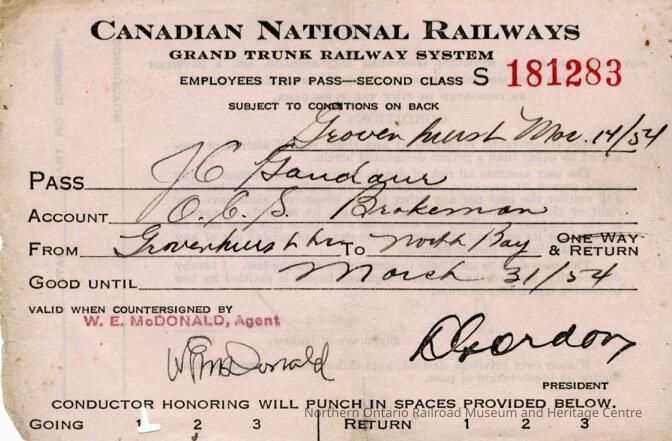 CANADIAN NATIONAL RAILWAYS
GRAND TRUNK RAILWAY SYSTEM
EMPLOYEES TRIP PASS—SECOND CLASS S 181283
SUBJECT TO CONDITIONS ON BACK
Gravenhurst Mar. 14/54
PASS J C Gaudaur
ACCOUNT O. C. S. Brakeman
FROM Gravenhurst Ont TO North Bay ONE WAY & RETURN
GOOD UNTIL March 31/54
VALID WHEN COUNTERSIGNED BY
W. E. McDONALD, Agent
WE McDonald
D Gordon
PRESIDENT
CONDUCTOR HONORING WILL PUNCH IN SPACES PROVIDED BELOW.
Northern Ontario Railroad Museum and Heritage Centre
GOING 1 2 3 RETURN 1 2 3